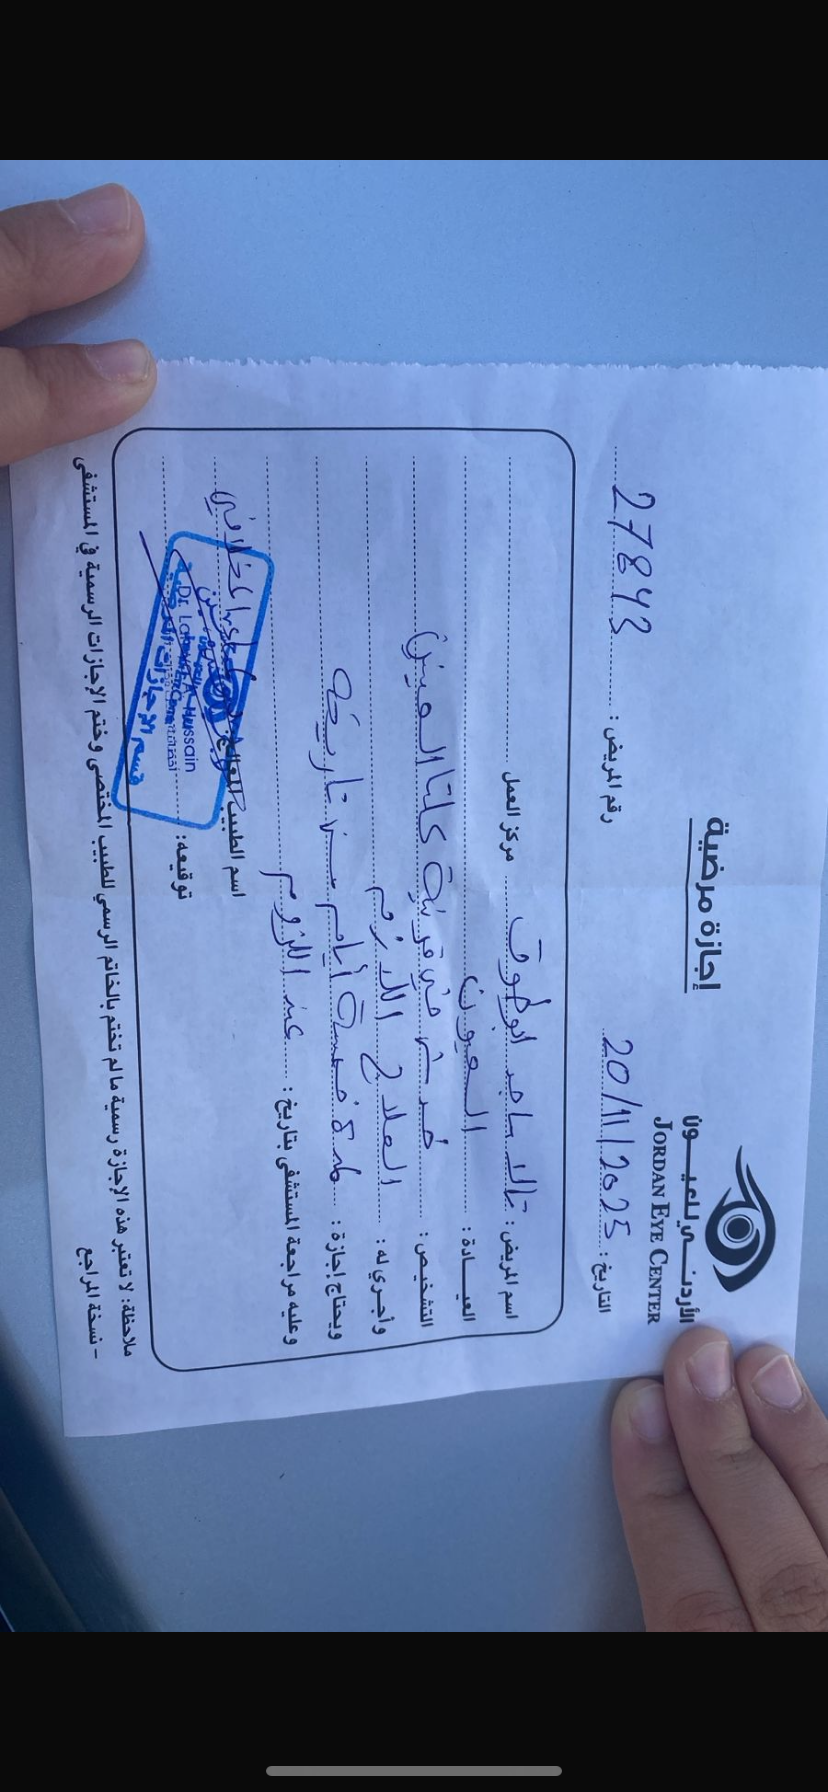 الأردنـي للعيـــون
JORDAN EYE CENTER
إجازة مرضية
التاريخ : 20/11/2025
رقم المريض : 27843
اسم المريض : تالا ماجد مركز العمل
العيـــادة : العيون
التشخيص : خدش في قرنية كلتا العينين
وأجري له : العلاج اللازم
ويحتاج إجازة : لمدة خمسة أيام من تاريخه
وعليه مراجعة المستشفى بتاريخ : عند اللزوم
اسم الطبيب المعالج
توقيعه :
Hussain
قسم الإجازات
ملاحظة: لا تعتبر هذه الإجازة رسمية ما لم تختم بالخاتم الرسمي للطبيب المختص وختم الإجازات الرسمية في المستشفى
- نسخة المراجع